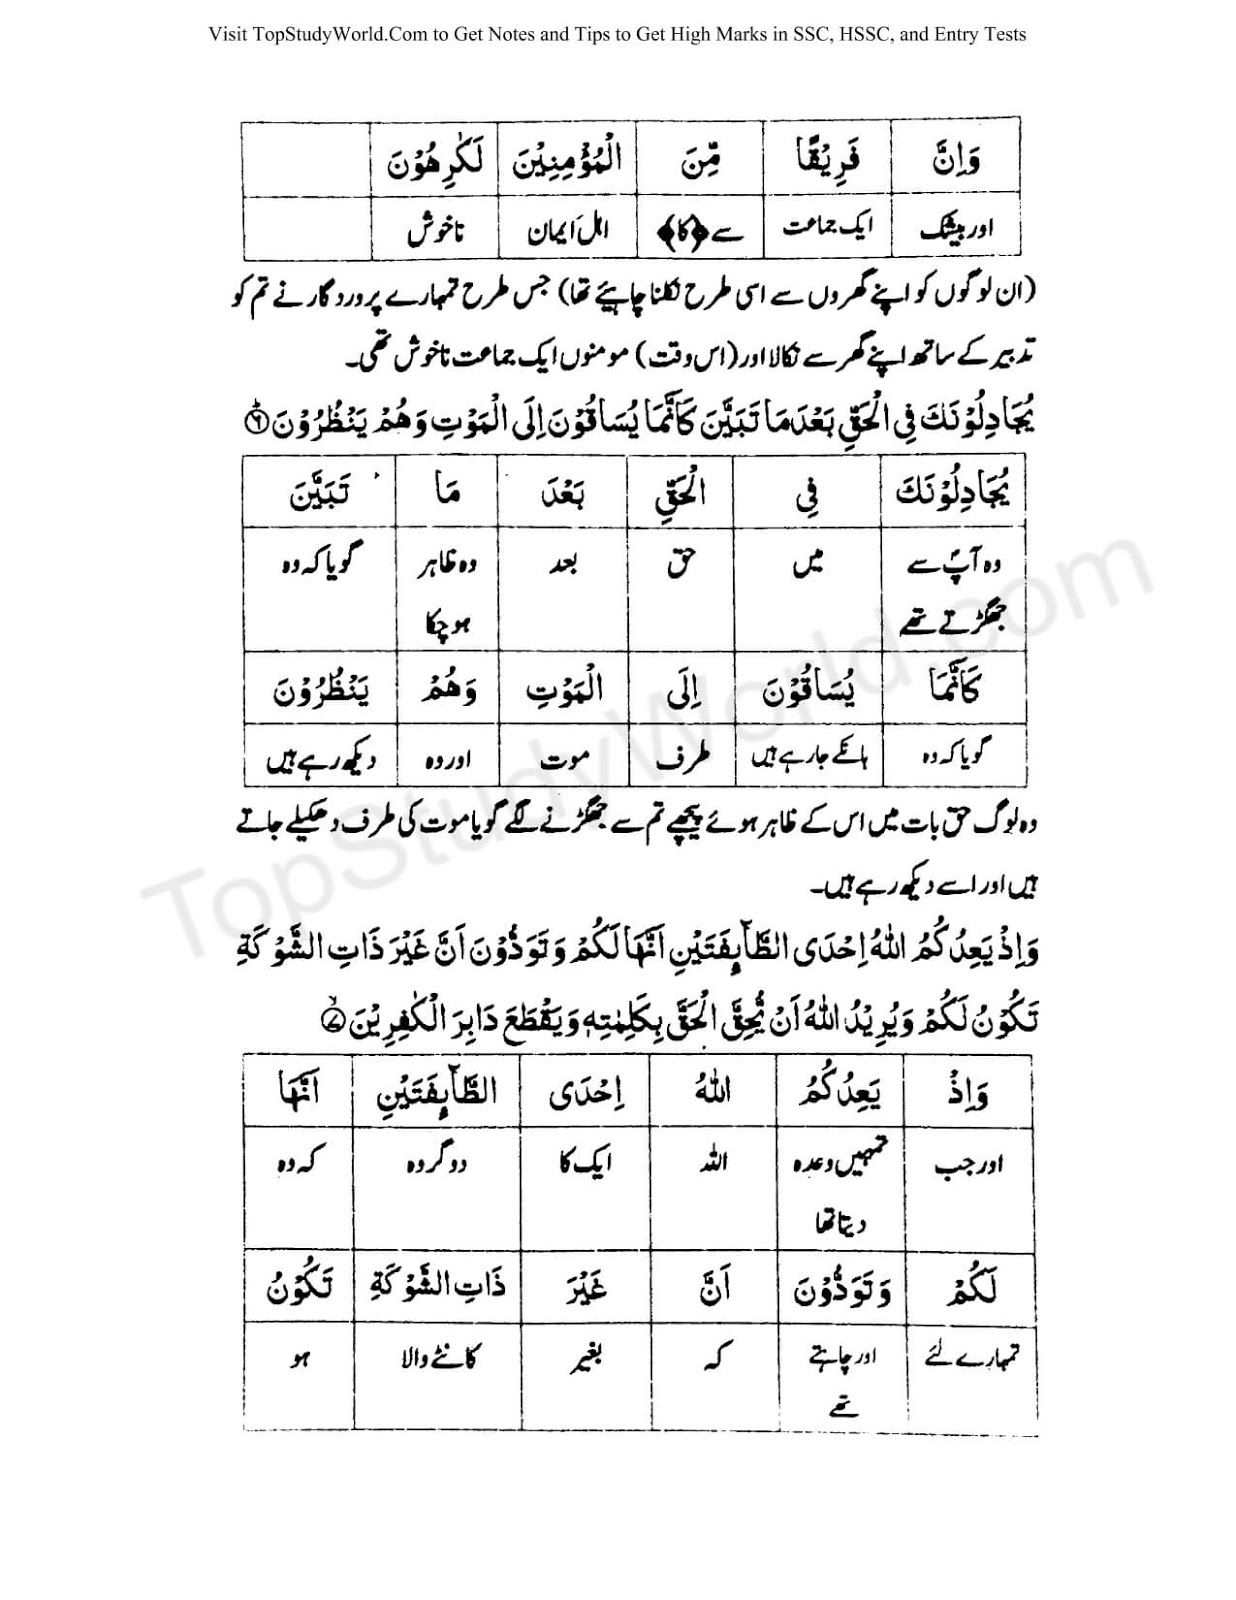 Visit TopStudyWorld.Com to Get Notes and Tips to Get High Marks in SSC, HSSC, and Entry Tests
وَاِنَّ فَرِيْقًا مِّنَ الْمُؤْمِنِيْنَ لَكٰرِهُوْنَ
اور بیشک ایک جماعت سے ﴿کا﴾ اہل ایمان ناخوش
(ان لوگوں کو اپنے گھروں سے اسی طرح نکلنا چاہیئے تھا) جس طرح تمہارے پروردگار نے تم کو
تدبیر کے ساتھ اپنے گھر سے نکالا اور (اس وقت) مومنوں ایک جماعت ناخوش تھی۔
يُجَادِلُوْنَكَ فِى الْحَقِّ بَعْدَ مَا تَبَيَّنَ كَاَنَّمَا يُسَاقُوْنَ اِلَى الْمَوْتِ وَهُمْ يَنْظُرُوْنَ ۶
يُجَادِلُوْنَكَ فِى الْحَقِّ بَعْدَ مَا تَبَيَّنَ
وہ آپؐ سے میں حق بعد وہ ظاہر گویا کہ وہ
جھگڑتے تھے ہو چکا
كَاَنَّمَا يُسَاقُوْنَ اِلَى الْمَوْتِ وَهُمْ يَنْظُرُوْنَ
گویا کہ وہ ہانکے جا رہے ہیں طرف موت اور وہ دیکھ رہے ہیں
وہ لوگ حق بات میں اس کے ظاہر ہوئے پیچھے تم سے جھگڑنے لگے گویا موت کی طرف دھکیلے جاتے
ہیں اور اسے دیکھ رہے ہیں۔
وَاِذْ يَعِدُكُمُ اللّٰهُ اِحْدَى الطَّآئِفَتَيْنِ اَنَّهَا لَكُمْ وَتَوَدُّوْنَ اَنَّ غَيْرَ ذَاتِ الشَّوْكَةِ
تَكُوْنُ لَكُمْ وَيُرِيْدُ اللّٰهُ اَنْ يُّحِقَّ الْحَقَّ بِكَلِمٰتِهٖ وَيَقْطَعَ دَابِرَ الْكٰفِرِيْنَ ۷
وَاِذْ يَعِدُكُمُ اللّٰهُ اِحْدَى الطَّآئِفَتَيْنِ اَنَّهَا
اور جب تمہیں وعدہ اللہ ایک کا دو گروہ کہ وہ
دیتا تھا
لَكُمْ وَتَوَدُّوْنَ اَنَّ غَيْرَ ذَاتِ الشَّوْكَةِ تَكُوْنُ
تمہارے لئے اور چاہتے کہ بغیر کانٹے والا ہو
تھے
TopStudyWorld.com